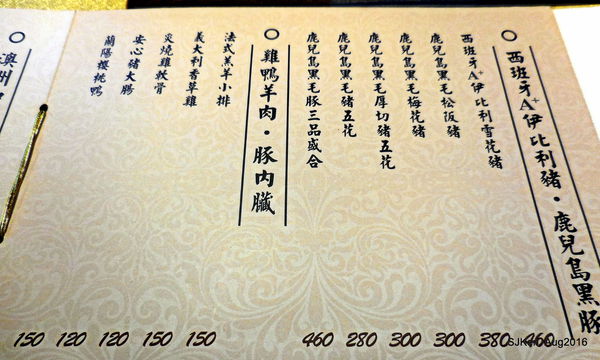 西班牙A+伊比利豬・鹿兒島黑豚
西班牙A+伊比利雪花豬 460
鹿兒島黑毛松阪豬 380
鹿兒島黑毛梅花豬 300
鹿兒島黑毛厚切豬五花 300
鹿兒島黑毛豬五花 280
鹿兒島黑毛豚三品盛合 460
雞鴨羊肉・豚內臟
法式羔羊小排 150
義大利香草雞 150
炙燒雞軟骨 120
安心豬大腸 120
蘭陽櫻桃鴨 150
澳洲
Aug2016